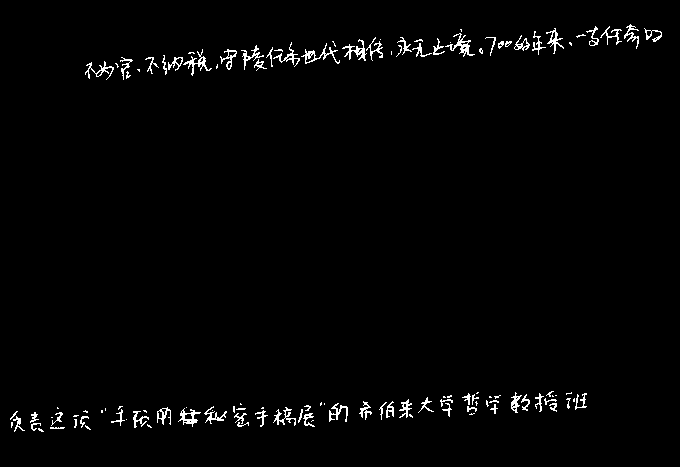 不为官、不纳税,守陵任务世代相传,永无止境。700多年来,一支
负责这项"牛顿的秘密手稿展"的希伯来大学哲学教授班